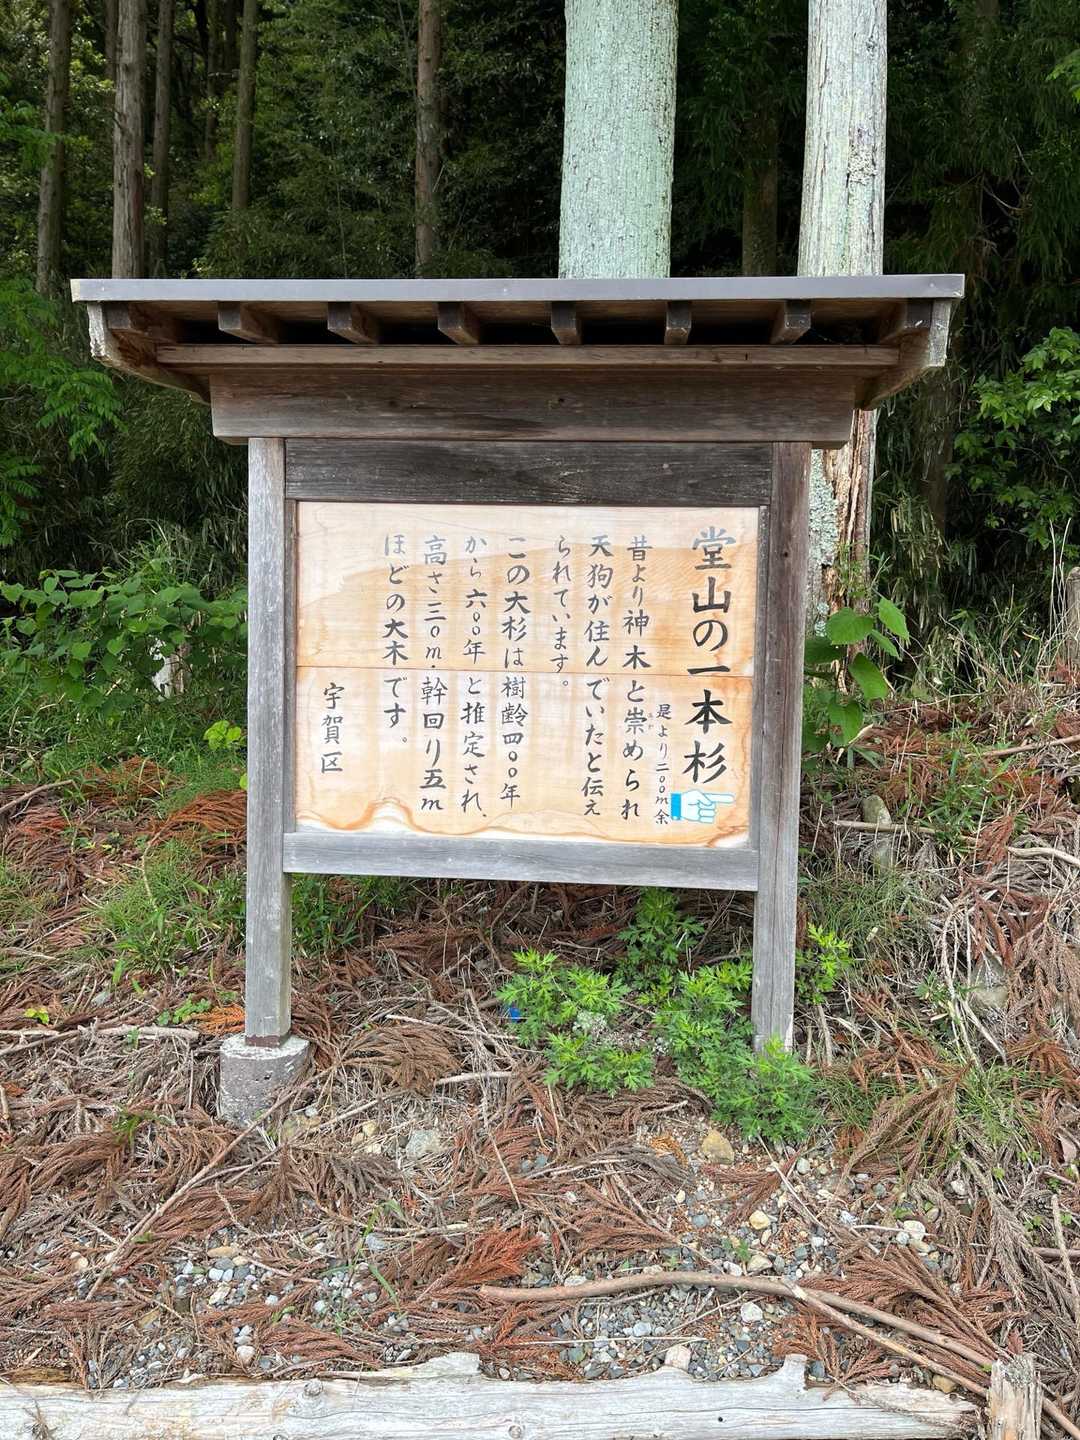 堂山の一本杉
是より二〇〇m余
昔より神木と崇められ
天狗が住んでいたと伝え
られています。
この大杉は樹齢四〇〇年
から六〇〇年と推定され、
高さ三〇m・幹回り五m
ほどの大木です。
宇賀区